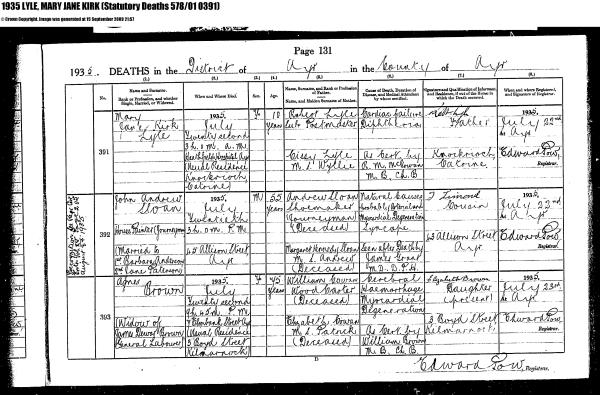 1935 LYLE, MARY JANE KIRK (Statutory Deaths 578/01 0391)
© Crown Copyright. Image was generated at 15 September 2009 21:57
Page 131
1935. DEATHS in the District of Ayr in the County of Ayr
No.
Name and Surname.
Rank or Profession, and whether Single, Married, or Widowed.
When and Where Died.
Sex.
Age.
Name, Surname, and Rank or Profession of Father.
Name, and Maiden Surname of Mother.
Cause of Death, Duration of Disease, and Medical Attendant by whom certified.
Signature and Qualification of Informant, and Residence, if out of the House in which the Death occurred.
When and where Registered, and Signature of Registrar.
391
Mary
Jane Kirk
Lyle
1935,
July
Twenty second
3 h. 0 m. A.M.
Heathfield Hospital Ayr
(Usual Residence
Knockroon
Catrine)
F
10
Years
Robert Lyle
Sub Postmaster
Cissy Lyle
M. S. Wyllie
Cardiac failure
Diphtheria
As Cert. by
M. B., Ch. B.
Father
Catrine
1935,
July 22nd
At Ayr
Edward Pow
Registrar.
392
John Andrew
Sloan
House Painter (Journeyman)
Married to
1st Barbara Anderson
2nd Jane Paterson
1935,
July
Twentieth
3 h. 0 m. P.M.
65 Allison Street
Ayr
M
55
Years
Andrew Sloan
Shoemaker
(Journeyman)
(Deceased)
Margaret Kennedy Sloan
M. S. Andrew
(Deceased)
Natural Causes
Probably
Myocardial Degeneration
Syncope
Seen after Death by
James Grant
M.D. D.P.H.
Cousin
63 Allison Street
Ayr
1935,
July 22nd
At Ayr
Edward Pow
Registrar.
393
Agnes
Brown
(Widow of
James Brown
General Labourer)
1935,
July
Twenty second
9 h. 45 m. P.M.
Elmbank Street Ayr
(Usual Residence
3 Boyd Street
Kilmarnock)
F
45
Years
William Cowan
Wood Carter
(Deceased)
Elizabeth Cowan
M. S. Patrick
(Deceased)
Cerebral
Haemorrhage
Myocardial
Degeneration
As Cert. by
William Brown
M. B. Ch. B.
Elizabeth Brown
Daughter
(present)
3 Boyd Street
Kilmarnock
1935,
July 23rd
At Ayr
Edward Pow
Registrar.
D
Edward Pow, Registrar.